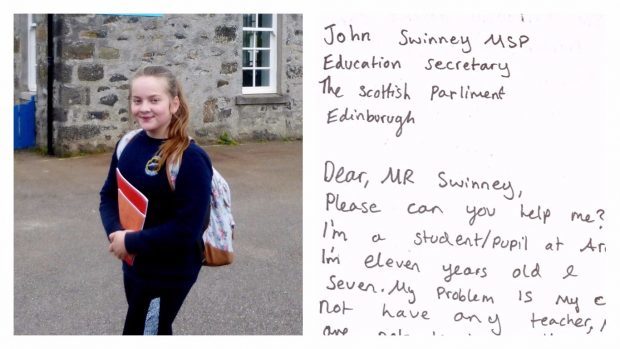 John Swinney MSP
Education secretary
The Scottish Parliment
Edinborugh
Dear, MR Swinney,
Please can you help me?
I'm a student/pupil at
I'm eleven years old &
Seven. My Problem Is my
not have any teacher,
are